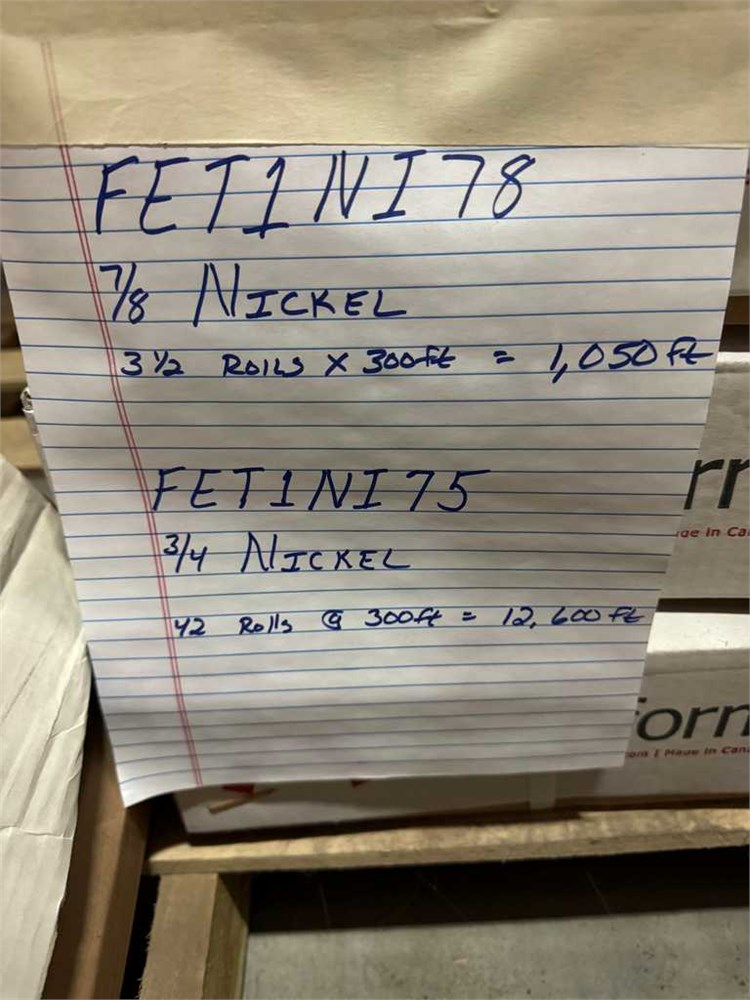 FET1NI78
7/8 NICKEL
3 1/2 ROllS X 300ft = 1,050 ft
FET1NI75
3/4 NICKEL
42 Rolls @ 300ft = 12,600 ft
Made in Can